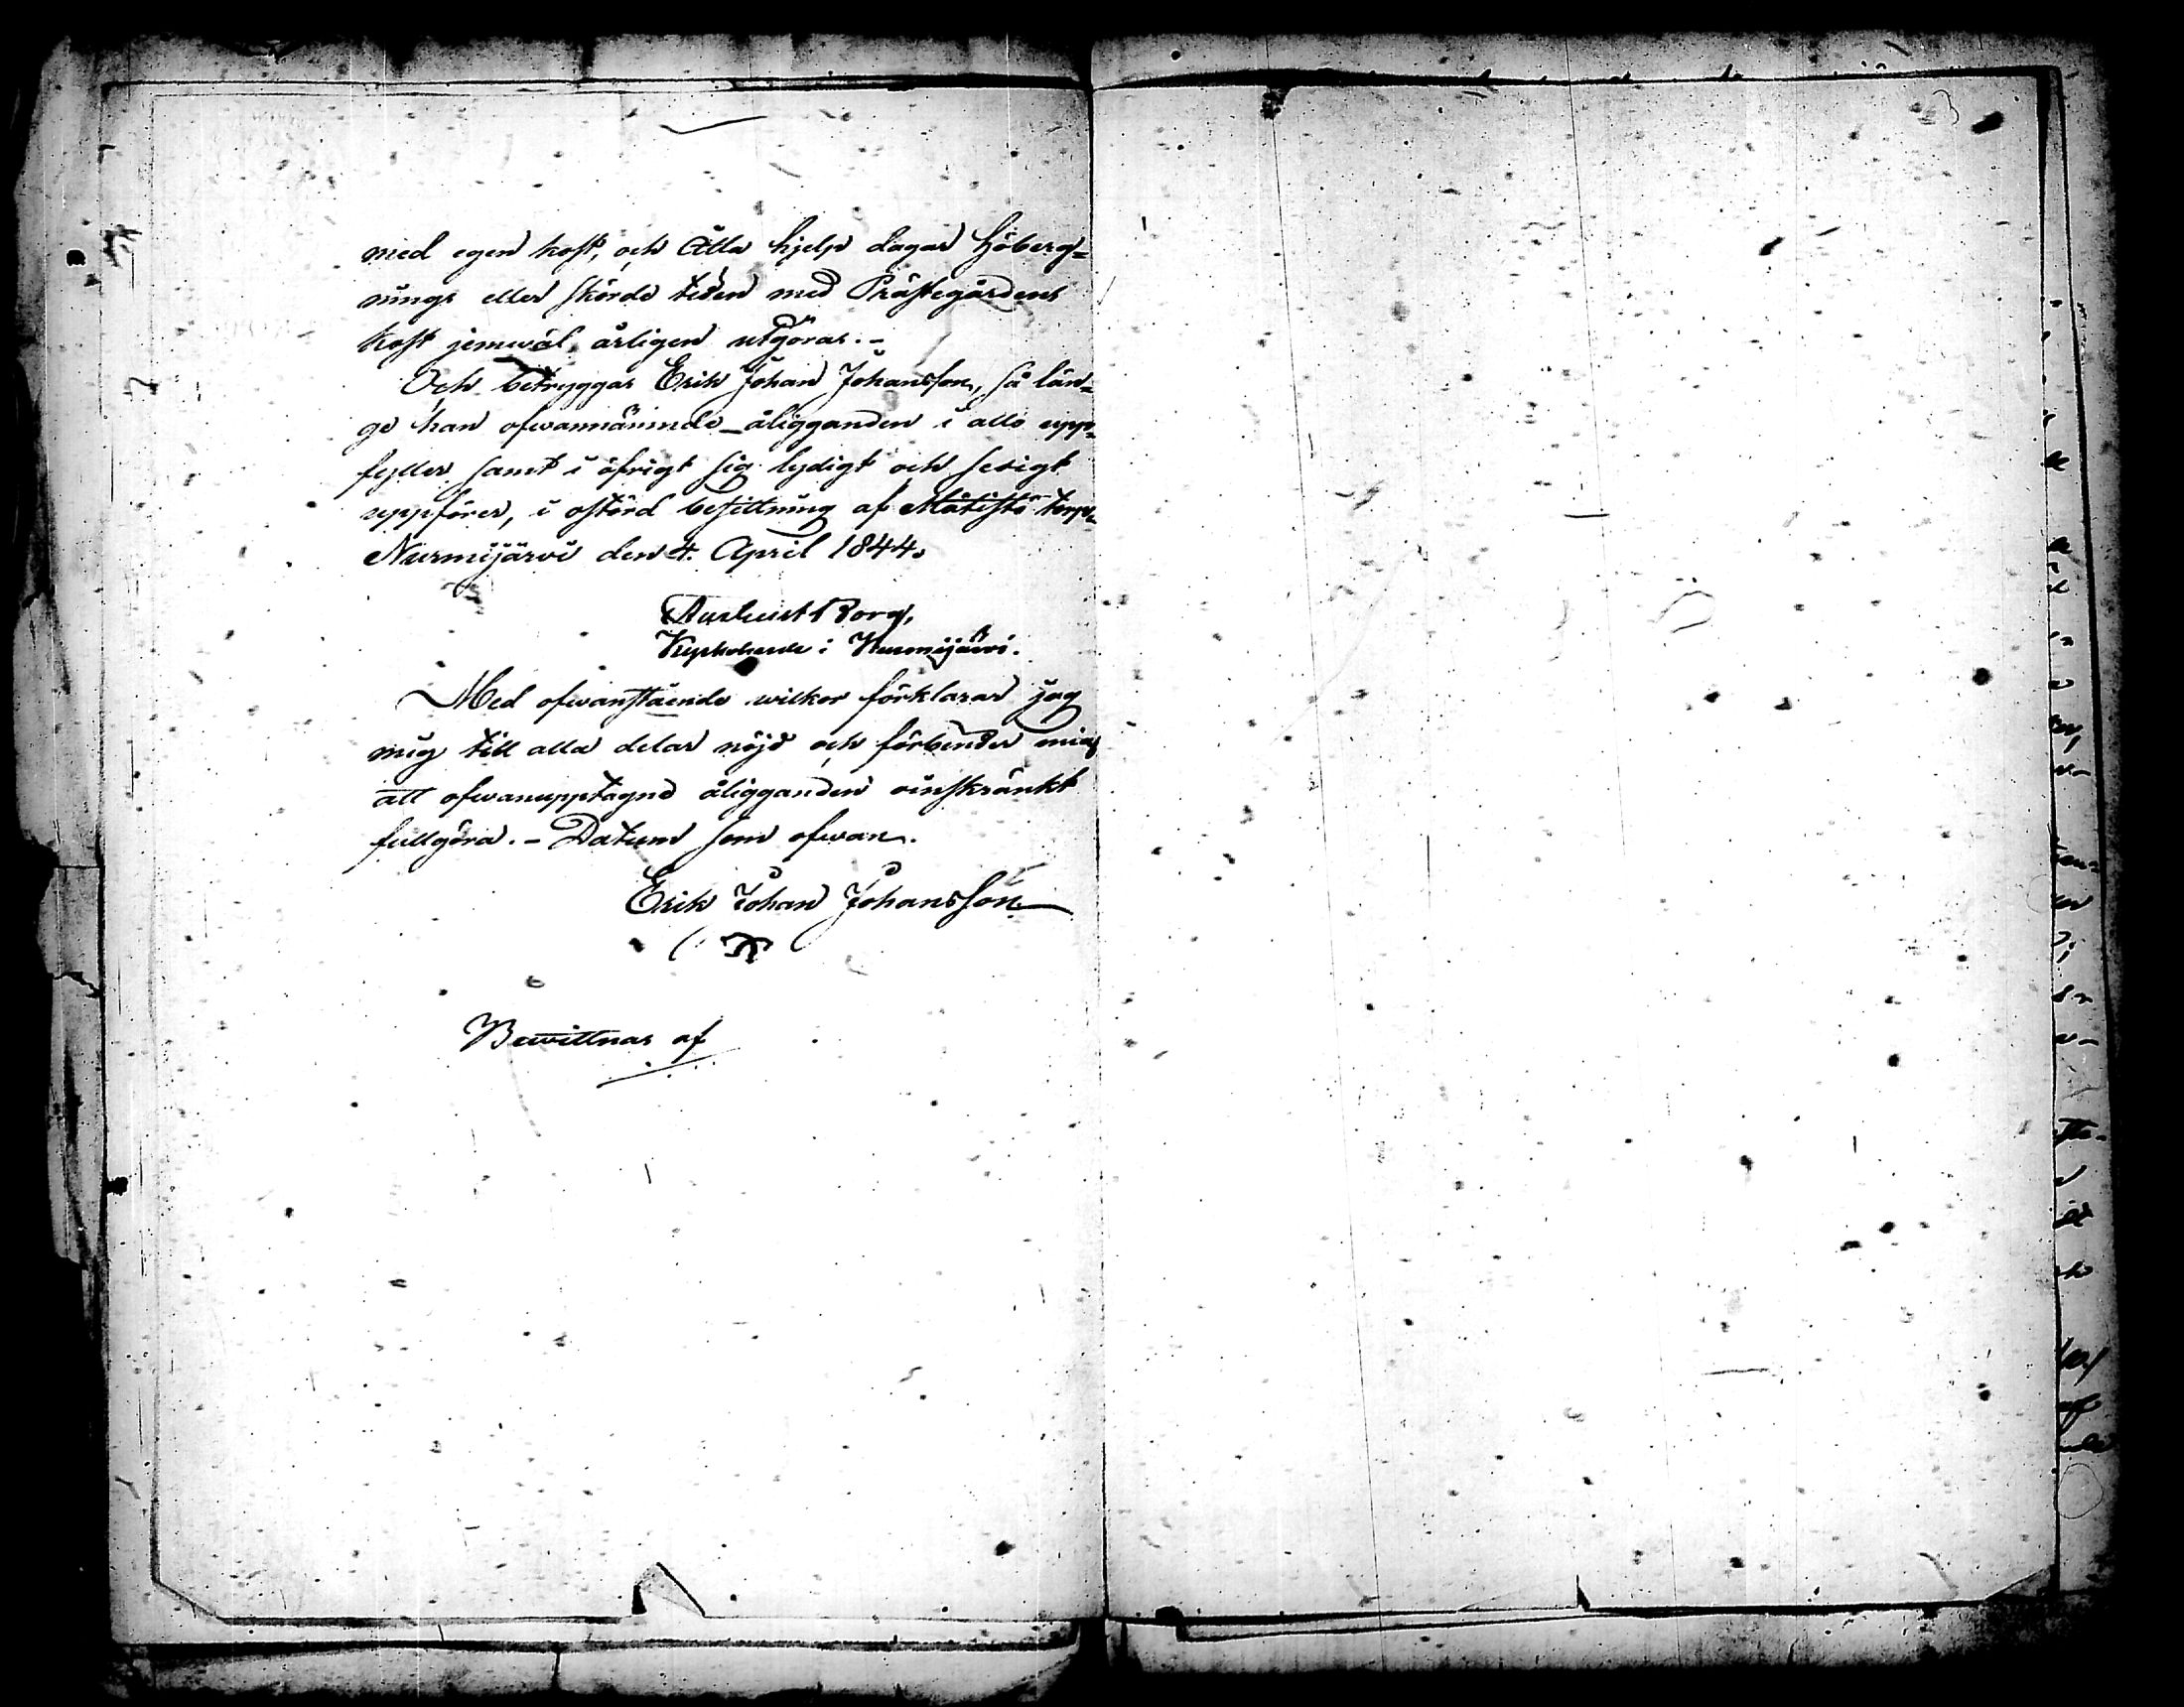 med egen kost, och Åtta hjelp dagar Höberg=
nings eller skörde tiden med Prästegårdens
kost jemwäl årligen utgöras. -
Och betryggas Erik Johan Johansson, så län=
ge han ofwannämnde åligganden i allo upp=
fyller samt i öfrigt sig lydigt och sedigt
uppförer, i ostörd besittning af Mätistö torp.
Nurmijärvi den 4. April 1844.
Borg,
Kyrkoherde i Nurmijärvi.
Med ofwanstående wilkor förklarar jag
mig till alla delar nöjd och förbinder mig
att ofwanupptagne åligganden oinskränkt
fullgöra. - Datum som ofwan.
Erik Johan Johansson
Bewittnas af
3